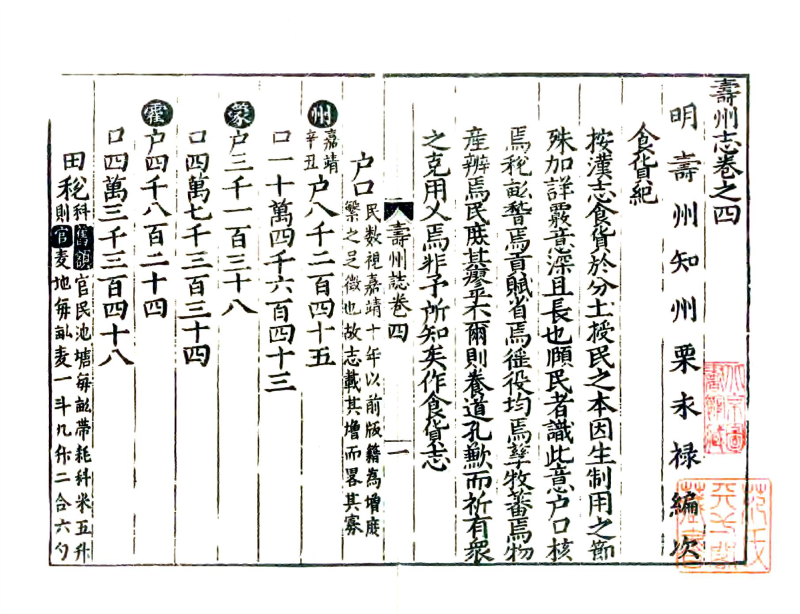 壽州志卷之四
明壽州知州栗永禄編次
食貨紀
按漢志食貨於分土授民之本因生制用之節
殊加詳覈意深且長也願民者識此意户口核
焉税畝稽焉貢賦省焉徭役均焉孳牧蕃焉物
産辨焉民庶其瘳乎不爾則養道孔歉而祈有衆
之克用乂焉非予所知矣作食貨志
户口民數視嘉靖十年以前版籍為增庶
繁之足徵也故志載其增而畧其寡
壽州誌卷四
一
州嘉靖辛丑户八千二百四十五
口一十萬四千六百四十三
蒙户三千一百三十八
口四萬七千三百三十四
霍户四千八百二十四
口四萬三千三百四十八
田税科則舊額官民池塘每畝帶耗科米五升
官麦地每畝麦一斗九升二合六勺